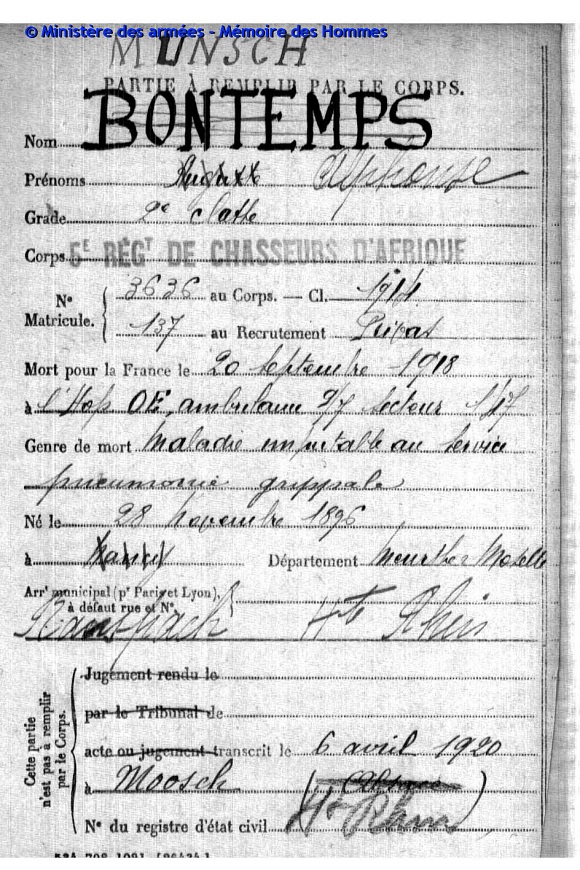 © Ministère des armées - Mémoire des Hommes
MUNSCH
PARTIE À REMPLIR PAR LE CORPS.
BONTEMPS
Nom
Prénoms Alphonse
Grade 2e classe
Corps 5E RÉGT DE CHASSEURS D'AFRIQUE
N° Matricule.
3636 au Corps. — Cl. 1914
137 au Recrutement
Mort pour la France le 20 septembre 1918
à l'Hop OE, ambulance 9/7 secteur
Genre de mort Maladie imputable au service
pneumonie grippale
Né le 28 novembre 1896
à Nancy Département Meurthe & Moselle
Arrt municipal (pr Paris et Lyon),
à défaut rue et N°.
Hte Rhin
Cette partie n'est pas à remplir par le Corps.
Jugement rendu le
par le Tribunal de
acte ou jugement transcrit le 6 avril 1920
à Moosch (Alsace)
Ht Rhin
N° du registre d'état civil